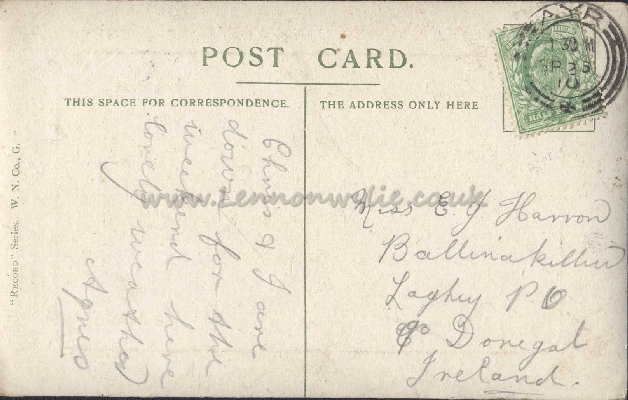 POST CARD.
THIS SPACE FOR CORRESPONDENCE.
THE ADDRESS ONLY HERE
"RECORD" Series. W. N. Co., G.
AYR
SP
10
Chris & I are
down for the
weekend here
lovely weather
Agnes
Miss E Y Harron
Ballinakillew
Laghey P O
Co Donegal
Ireland.
www.lennonwylie.co.uk